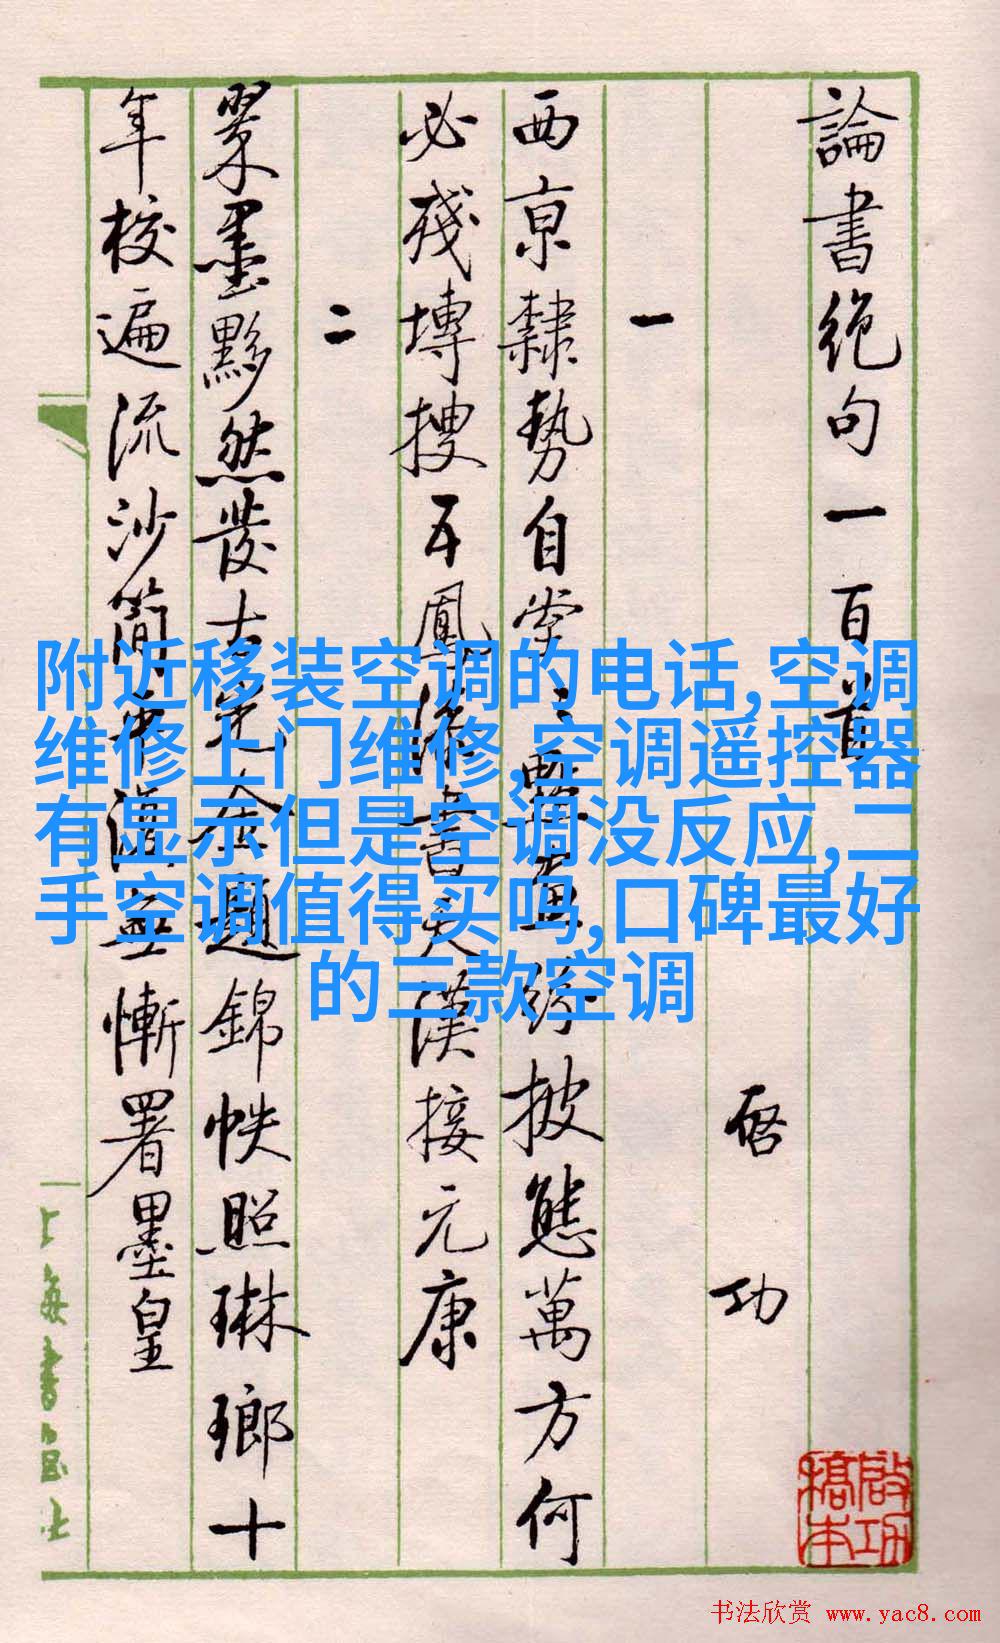 論書絶句一百首
启功
一
西京隸勢自堂堂點畫紛披態萬方何
必殘塼搜五鳳漆書天漢接元康
二
翠墨黟然發古光金題錦帙照琳瑯十
年校遍流沙簡平復無慚署墨皇
附近移装空调的电话,空调
维修上门维修,空调遥控器
有显示但是空调没反应,二
手空调值得买吗,口碑最好
的三款空调
啟功
稿本
书法欣赏 www.yac8.com